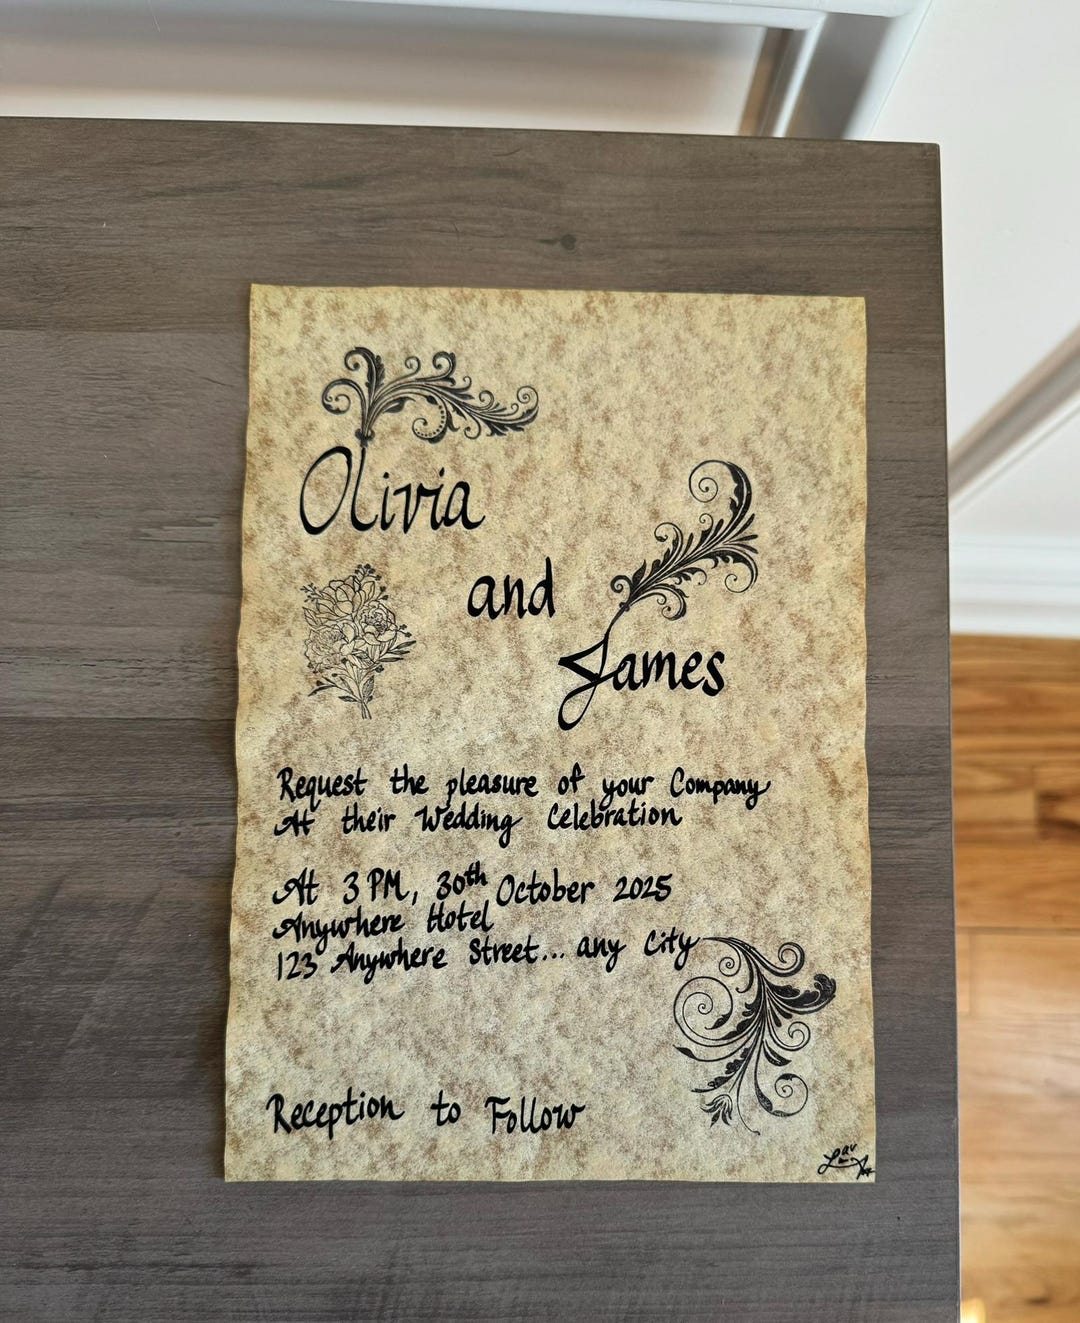 Olivia
and
James
Request the pleasure of your Company
At their Wedding Celebration
At 3 PM, 30th October 2025
Anywhere Hotel
123 Anywhere Street... any City
Reception to Follow